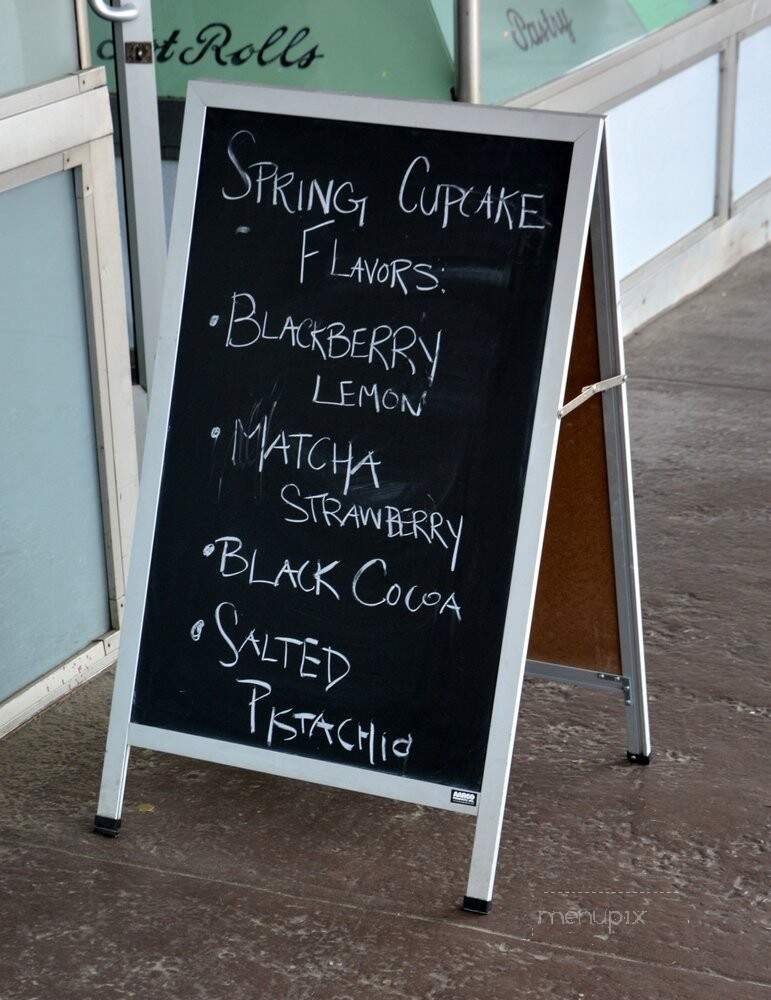 ot Rolls
Pastry
SPRING CUPCAKE
FLAVORS:
• BLACKBERRY
LEMON
• MATCHA
STRAWBERRY
• BLACK COCOA
• SALTED
PISTACHIO
AARCO
menupix